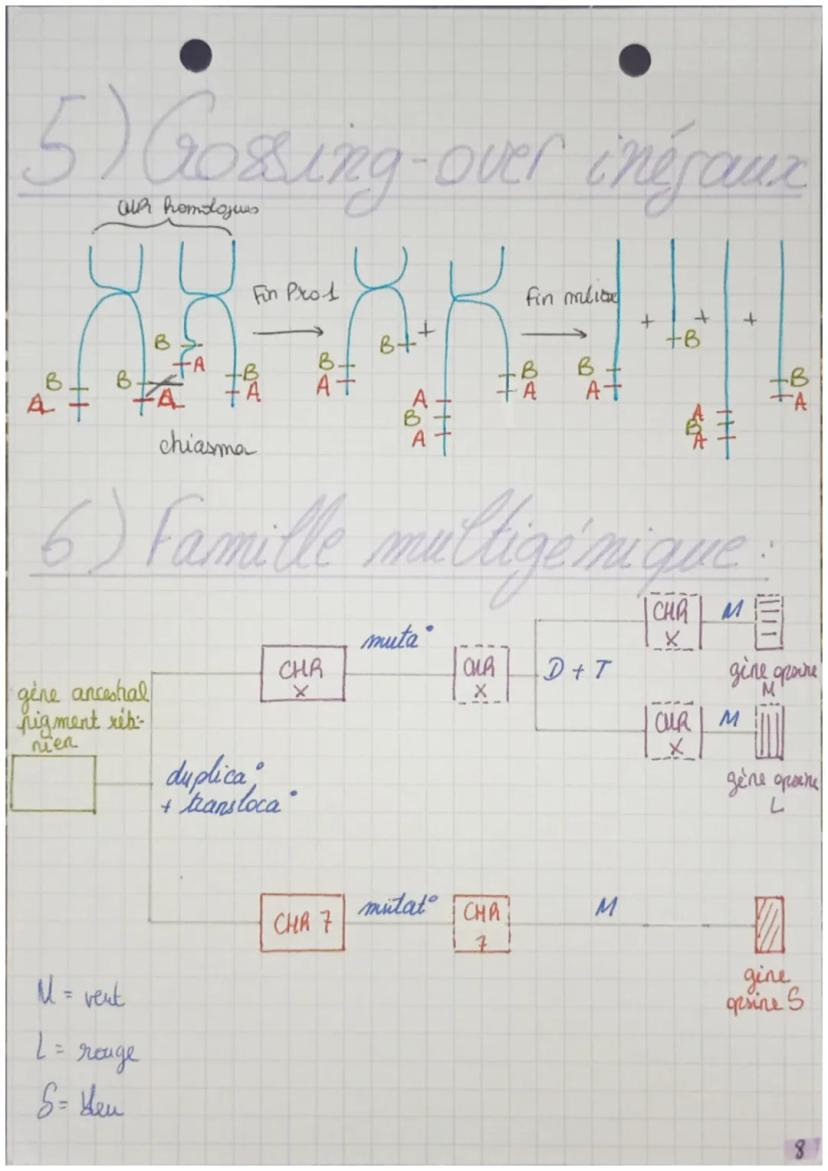 5) Crossing-over inégaux
CHR homologues
Fin Pro1
Fin méiose
B
A
B
A
B
A
B
A
chiasma
B
A
B
+
A
B
A
B
A
B
A
+
B
+
A
B
A
+
B
A
6) Famille multigénique :
gène ancestral
pigment réti-
nien
duplica°
+ transloca°
CHR
X
muta°
CHR
X
D + T
CHR
X
M
gène opsine
M
CHR
X
M
gène opsine
L
CHR 7
mutat°
CHR
7
M
gène
opsine S
M = vert
L = rouge
S = bleu
8